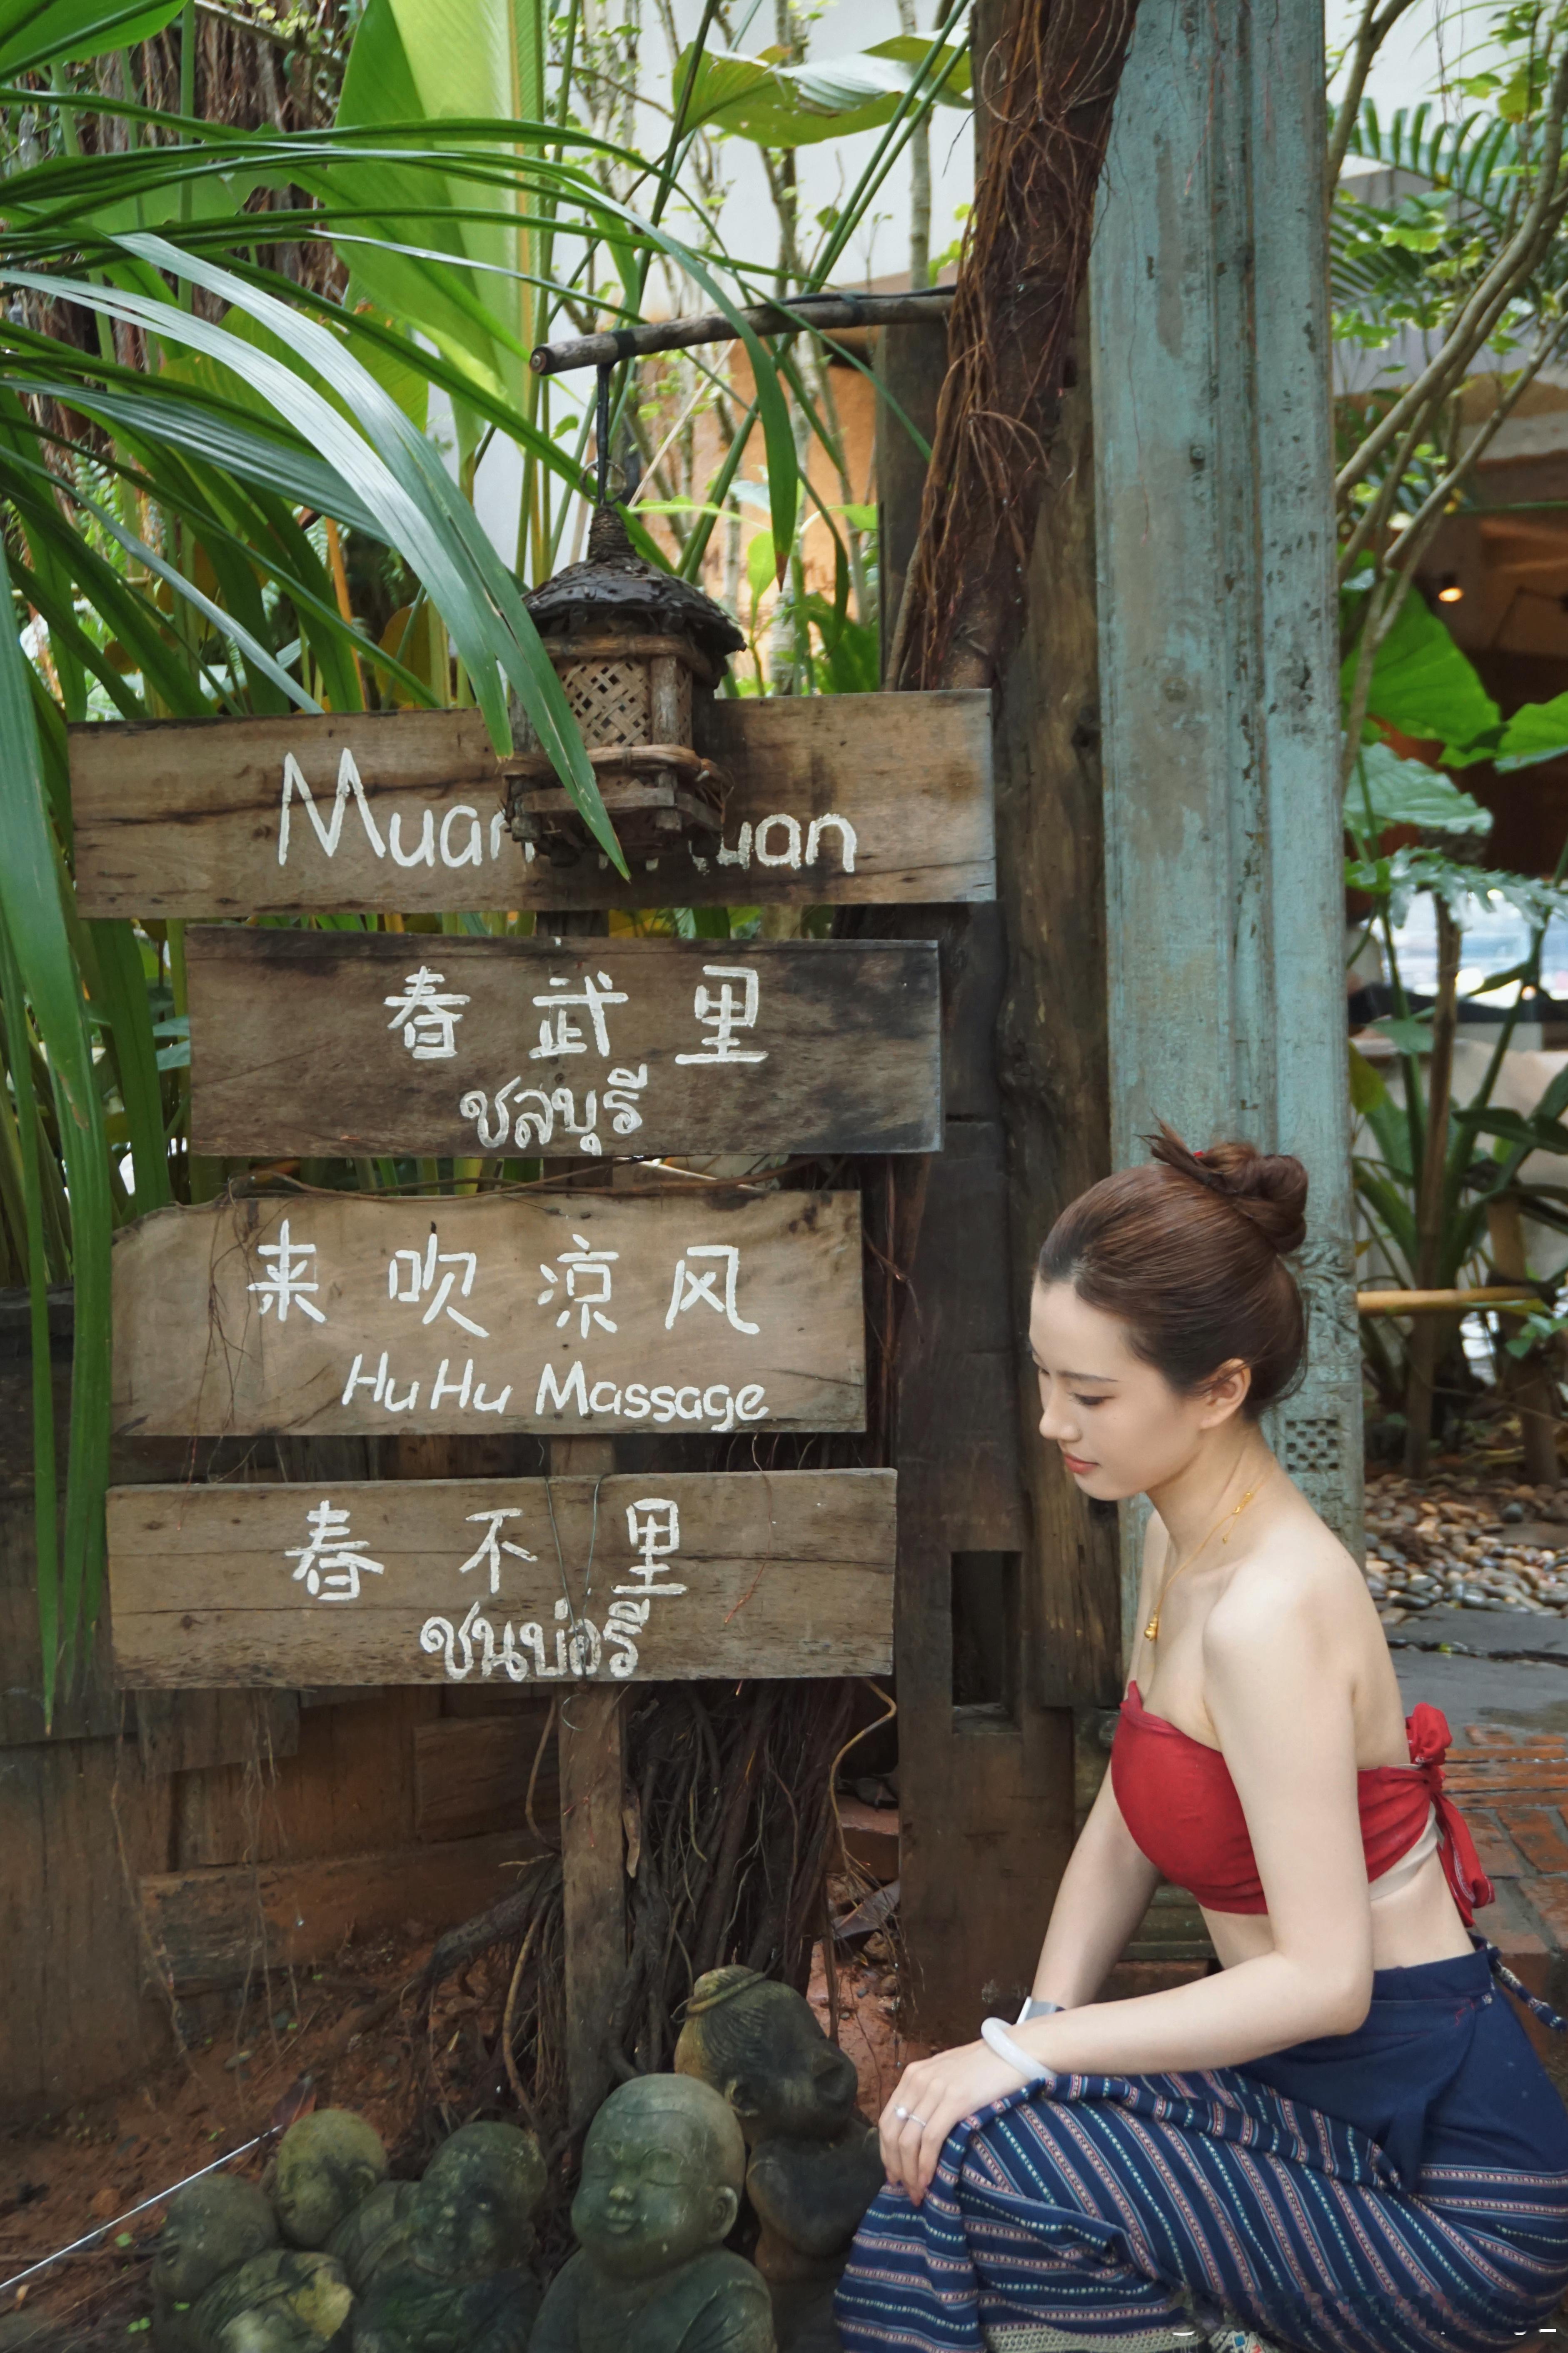 春武里
ชลบุรี
来吹凉风
HuHu Massage
春不里
ชนบ่อรี